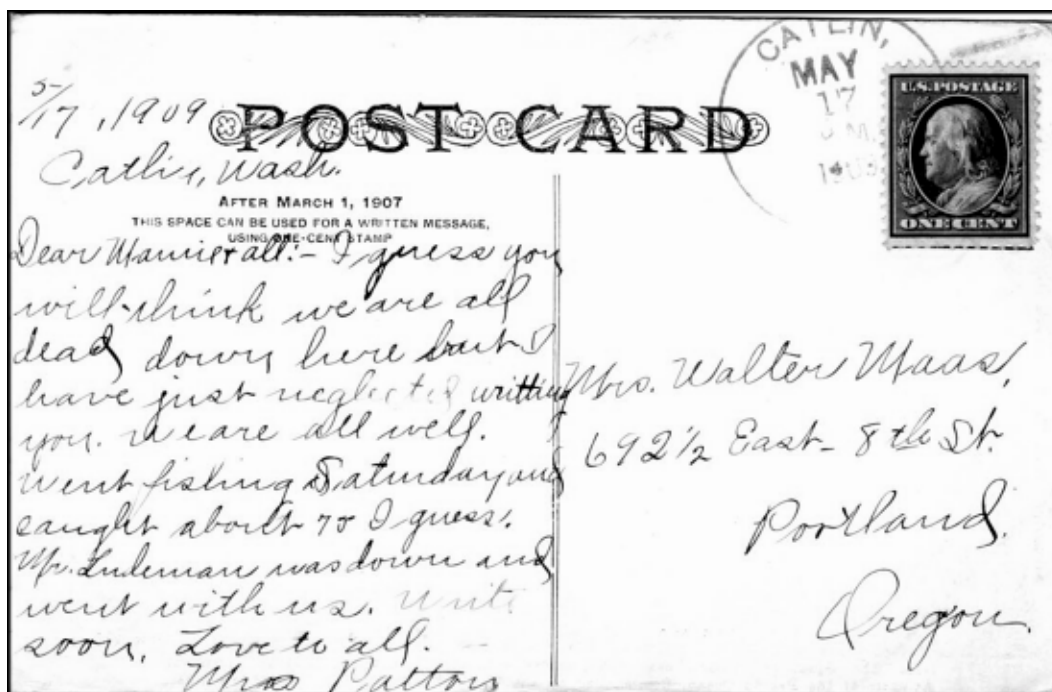 5/17, 1909
Catlin, Wash.
POST CARD
AFTER MARCH 1, 1907
THIS SPACE CAN BE USED FOR A WRITTEN MESSAGE,
USING ONE-CENT STAMP
Dear Mamie & all:- I guess you
will think we are all
dead down here but I
have just neglected writting
you. We are all well.
Went fishing Saturday and
caught about 70 I guess.
Mr. Luleman was down and
went with us. Write
soon. Love to all.
Mrs Patton
CATLIN,
MAY
17
M.
U.S. POSTAGE
ONE CENT
Mrs. Walter Maas,
692 1/2 East - 8th St.
Portland,
Oregon.